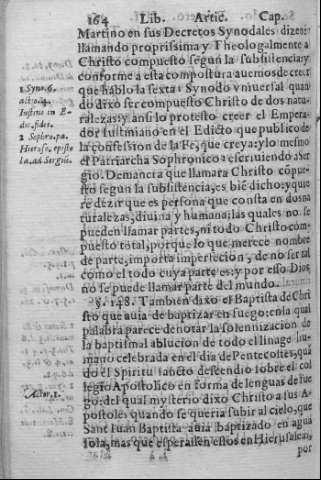 164 Lib. Artic. Cap.
Martino en sus Decretos Synodales dizen:
llamando proprissima y Theologalmente a
Christo compuesto segun la subsistencia: y
conforme a esta compostura auemos de creer
que hablo la sexta 1 Synodo vniuersal quan
do dixo ser compuesto Christo de dos natu-
ralezas: y ansi lo protesto creer el Empera-
dor Iustiniano en el Edicto que publico de
la confession de la Fe, que creya: y lo mesmo
el Patriarcha Sophronico 2 escriuiendo a Ser
gio. De manera que llamara Christo cõpue-
sto segun la subsistencia, es biẽ dicho: y quie
re dezir que es persona que consta en dos na
turalezas, diuina y humana: las quales no se
pueden llamar partes, ni todo Christo com-
puesto total, porque lo que merece nombre
de parte, importa imperfecion, de no ser tal
como el todo cuya parte es: y por esso Dios
no se puede llamar parte del mundo.
§. 148. Tambien dixo el Baptista de Chri
sto que auia de baptizar en fuego: en la qual
palabra parece denotar la solennizacion de
la baptismal ablucion de todo el linage hu-
mano celebrada en el dia de Pentecostes, quã
do el Spiritu sancto descendio sobre el col
legio Apostolico en forma de lenguas de fue
go: del qual mysterio dixo Christo a sus A-
postoles quando se queria subir al cielo, que
Sant Iuan Baptista auia baptizado en agua
sola, mas que esperassen ellos en Hierusalem,
por
1 Syno. 6.
acto. 4.
Iustin. in E-
dic. fidei.
2 Sophro. pa.
Hieroso. episto
la. ad Sergiũ.
Actor. 1.